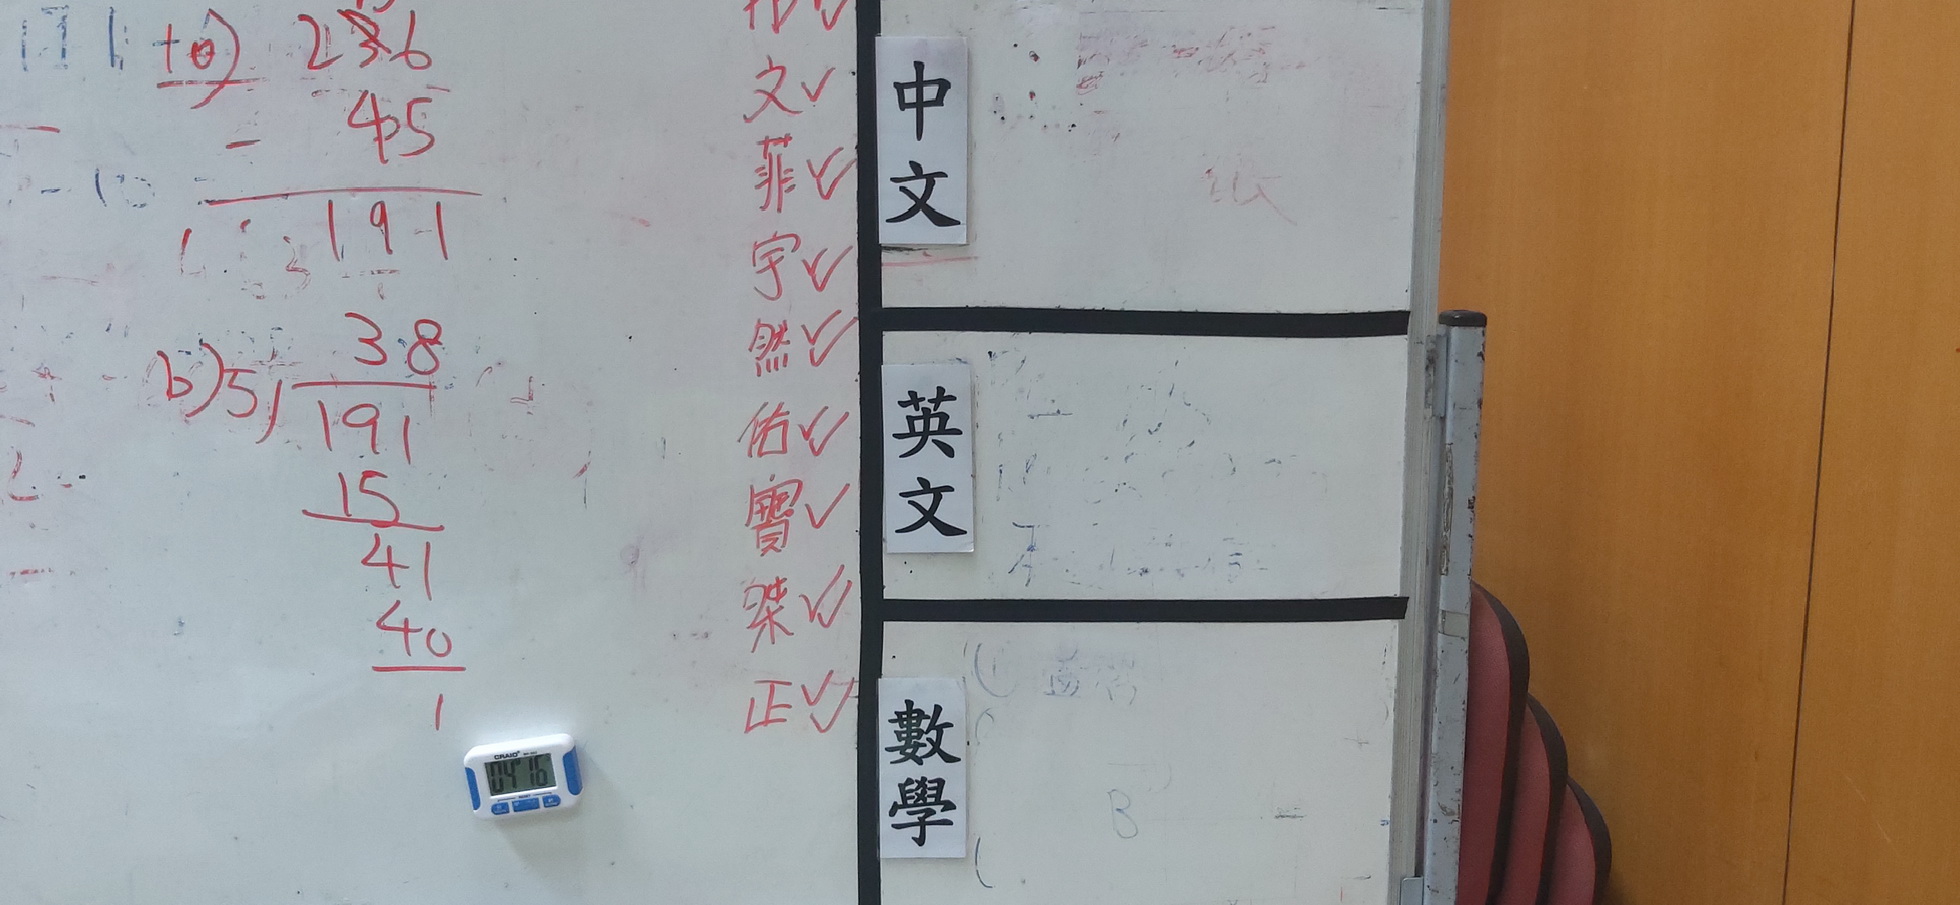 10) 236
- 45
191
b) 5) 38
191
15
41
40
1
文✓
菲✓✓
宇✓✓
然✓✓
佑✓✓
寶✓
桀✓✓
正✓✓
CRAIG
04 16
中文
英文
數學
B